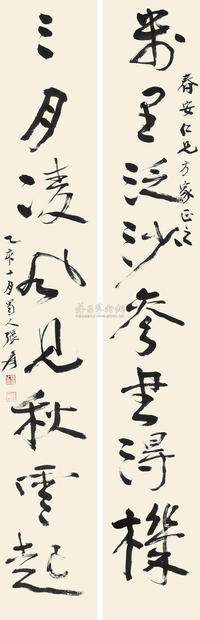 春安仁兄方家正之
里泛沙參書得機
三月凌風見秋雲起
乙亥十月蜀人張爰